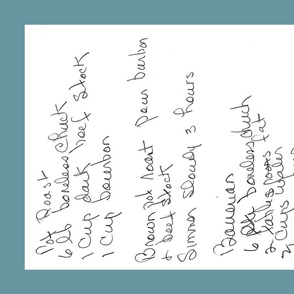 Pot Roast
6 lb boneless chuck
1 Cup dark beef stock
1 Cup bourbon
Brown pot roast pour burbon
+ beef stock
Simmer slowly 3 hours
Bavarian
6 boneless chuck
2 fat
2 cups